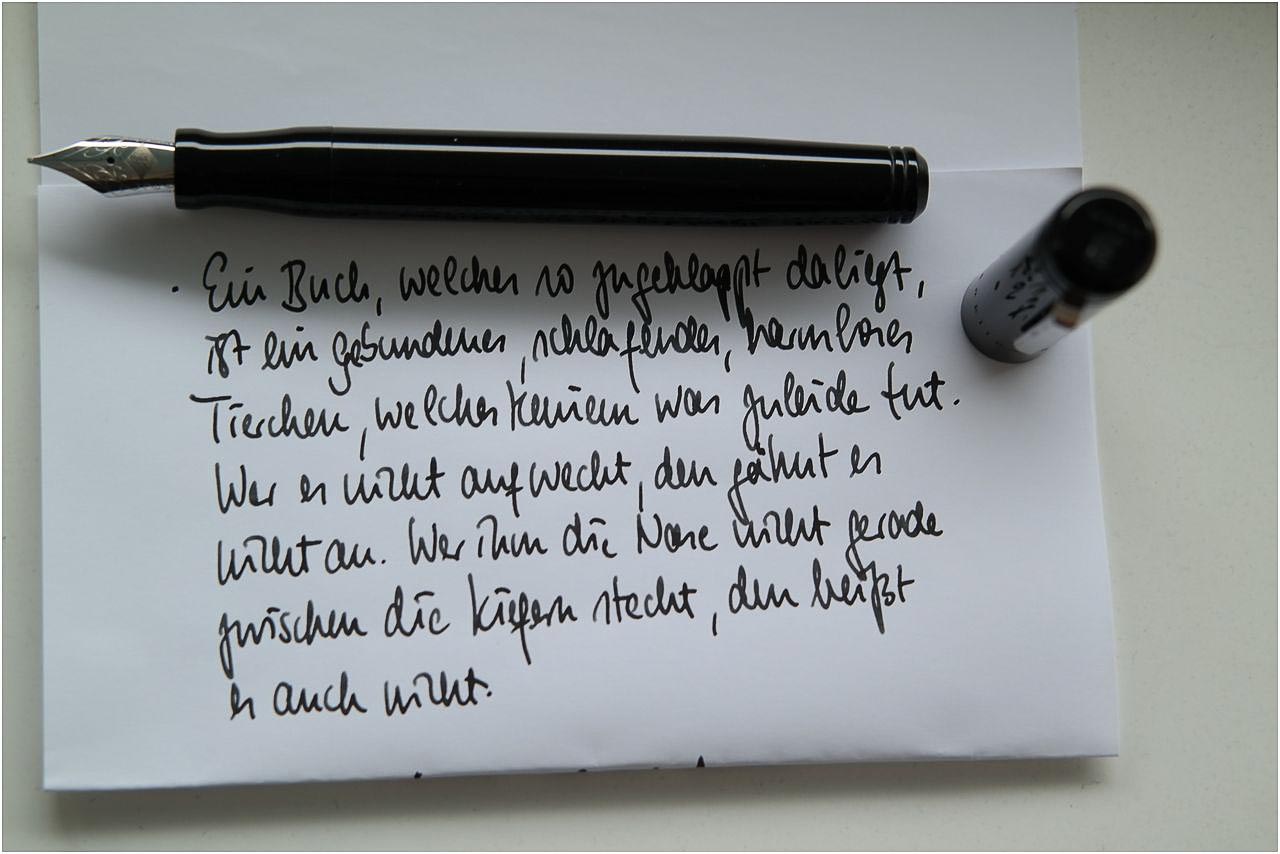 Ein Buch, welches so zugeklappt daliegt,
ist ein gebundenes, schlafendes, harmloses
Tierchen, welches keinem was zuleide tut.
Wer es nicht aufweckt, den gähnt es
nicht an. Wer ihm die Nase nicht gerade
zwischen die Kiefern steckt, den beißt
es auch nicht.